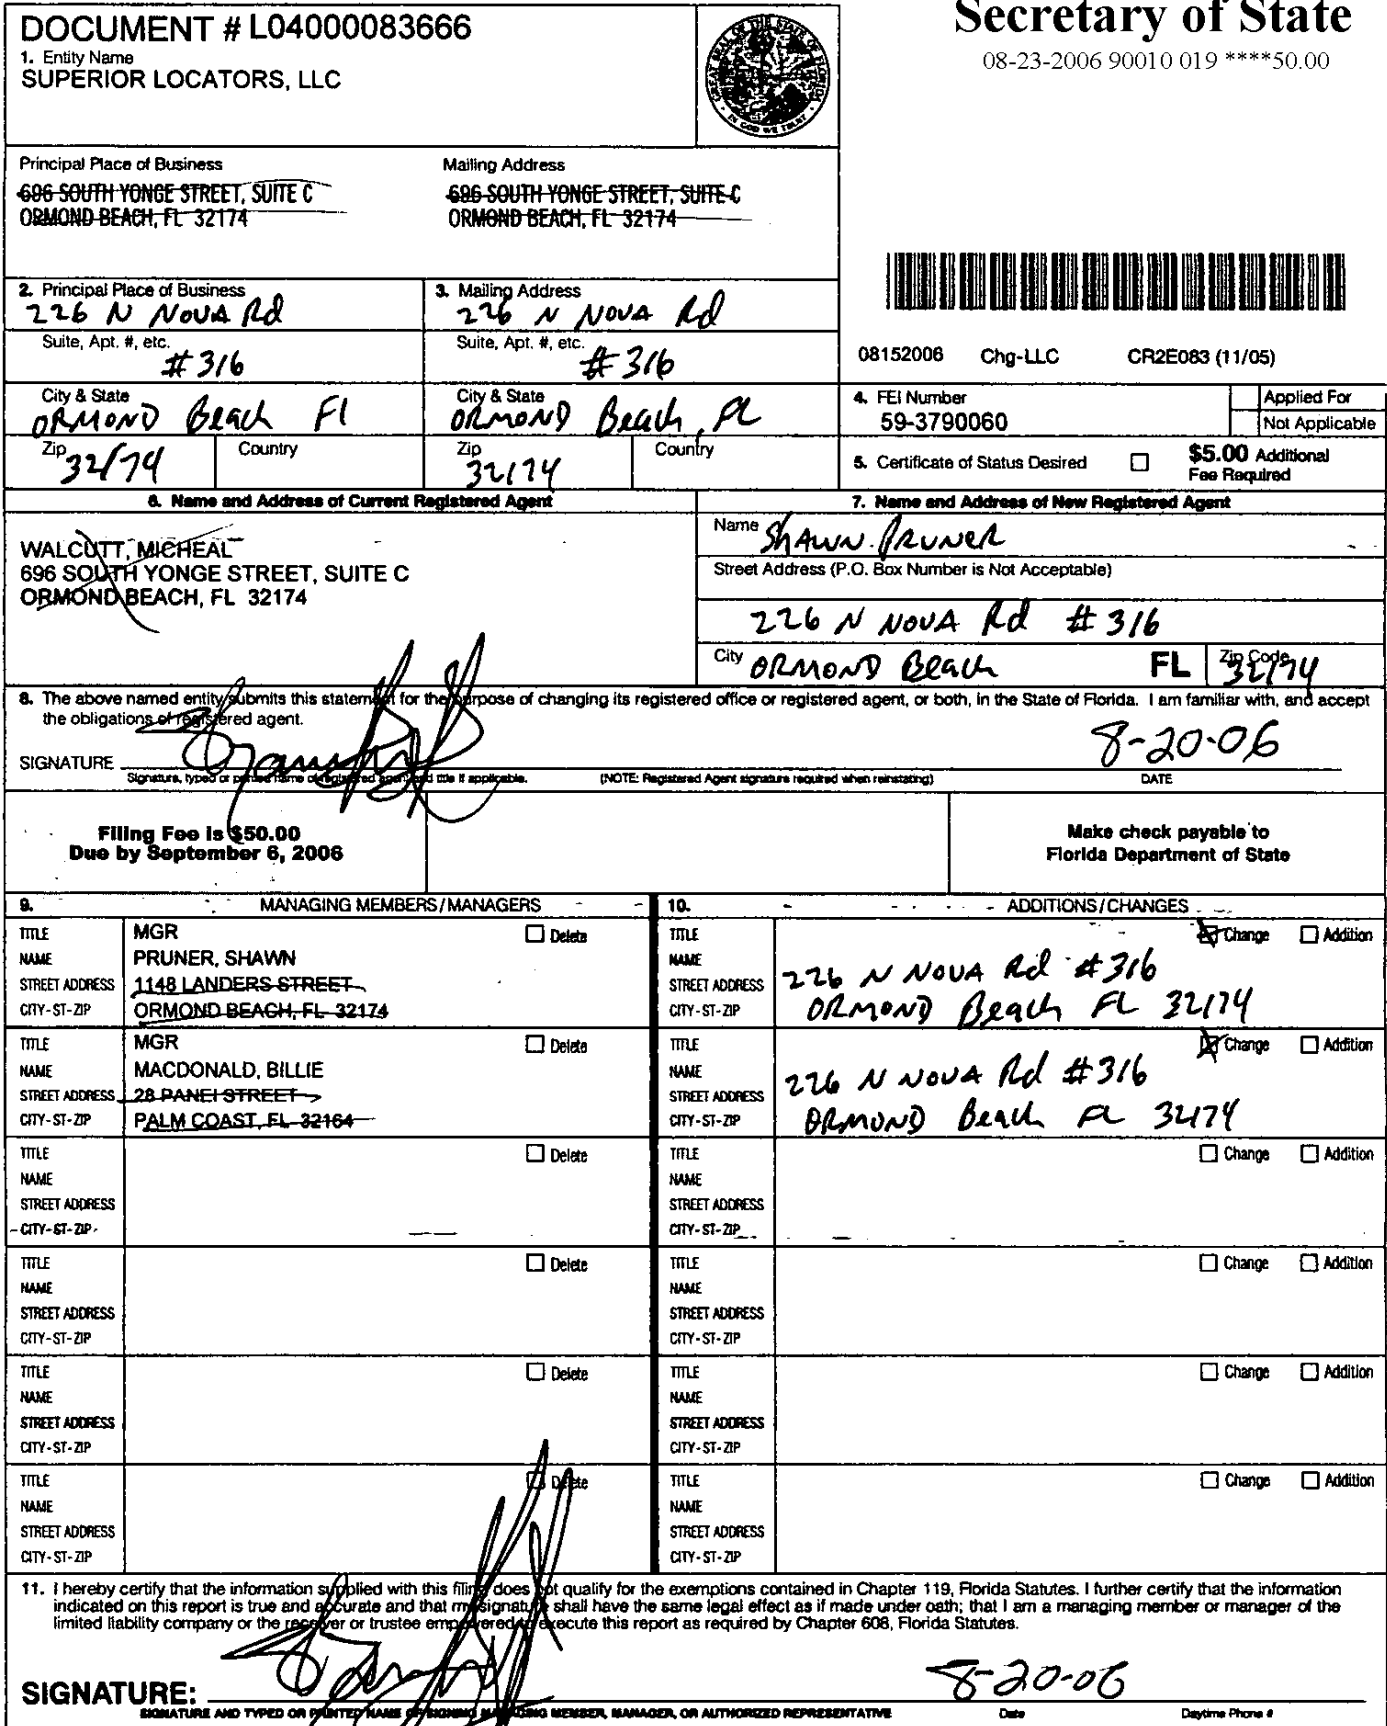 DOCUMENT # L04000083666
1. Entity Name
SUPERIOR LOCATORS, LLC
Secretary of State
08-23-2006 90010 019 ****50.00
Principal Place of Business
696 SOUTH YONGE STREET, SUITE C
ORMOND BEACH, FL 32174
Mailing Address
696 SOUTH YONGE STREET, SUITE C
ORMOND BEACH, FL 32174
2. Principal Place of Business
226 N NOVA Rd
Suite, Apt. #, etc.
#316
City & State
ORMOND Beach Fl
Zip
32174
Country
3. Mailing Address
226 N NOVA Rd
Suite, Apt. #, etc.
#316
City & State
ORMOND Beach, FL
Zip
32174
Country
08152006 Chg-LLC CR2E083 (11/05)
4. FEI Number
59-3790060
Applied For
Not Applicable
5. Certificate of Status Desired
$5.00 Additional
Fee Required
6. Name and Address of Current Registered Agent
WALCUTT, MICHEAL
696 SOUTH YONGE STREET, SUITE C
ORMOND BEACH, FL 32174
7. Name and Address of New Registered Agent
Name SHAWN PRUNER
Street Address (P.O. Box Number is Not Acceptable)
226 N NOVA Rd #316
City ORMOND Beach FL Zip Code 32174
8. The above named entity submits this statement for the purpose of changing its registered office or registered agent, or both, in the State of Florida. I am familiar with, and accept
the obligations of registered agent.
8-20-06
SIGNATURE
Signature, typed or printed name of registered agent and title if applicable. (NOTE: Registered Agent signature required when reinstating) DATE
Filing Fee is $50.00
Due by September 6, 2006
Make check payable to
Florida Department of State
9. MANAGING MEMBERS/MANAGERS
10. ADDITIONS/CHANGES
TITLE MGR Delete
NAME PRUNER, SHAWN
STREET ADDRESS 1148 LANDERS STREET
CITY-ST-ZIP ORMOND BEACH, FL 32174
TITLE Change Addition
NAME
STREET ADDRESS 226 N NOVA Rd #316
CITY-ST-ZIP ORMOND Beach FL 32174
TITLE MGR Delete
NAME MACDONALD, BILLIE
STREET ADDRESS 28 PANEI STREET
CITY-ST-ZIP PALM COAST, FL 32164
TITLE Change Addition
NAME
STREET ADDRESS 226 N NOVA Rd #316
CITY-ST-ZIP ORMOND Beach FL 32174
TITLE Delete
NAME
STREET ADDRESS
CITY-ST-ZIP
TITLE Change Addition
NAME
STREET ADDRESS
CITY-ST-ZIP
TITLE Delete
NAME
STREET ADDRESS
CITY-ST-ZIP
TITLE Change Addition
NAME
STREET ADDRESS
CITY-ST-ZIP
TITLE Delete
NAME
STREET ADDRESS
CITY-ST-ZIP
TITLE Change Addition
NAME
STREET ADDRESS
CITY-ST-ZIP
TITLE Delete
NAME
STREET ADDRESS
CITY-ST-ZIP
TITLE Change Addition
NAME
STREET ADDRESS
CITY-ST-ZIP
11. I hereby certify that the information supplied with this filing does not qualify for the exemptions contained in Chapter 119, Florida Statutes. I further certify that the information
indicated on this report is true and accurate and that my signature shall have the same legal effect as if made under oath; that I am a managing member or manager of the
limited liability company or the receiver or trustee empowered to execute this report as required by Chapter 608, Florida Statutes.
SIGNATURE: 8-20-06
SIGNATURE AND TYPED OR PRINTED NAME OF SIGNING MANAGING MEMBER, MANAGER, OR AUTHORIZED REPRESENTATIVE Date Daytime Phone #